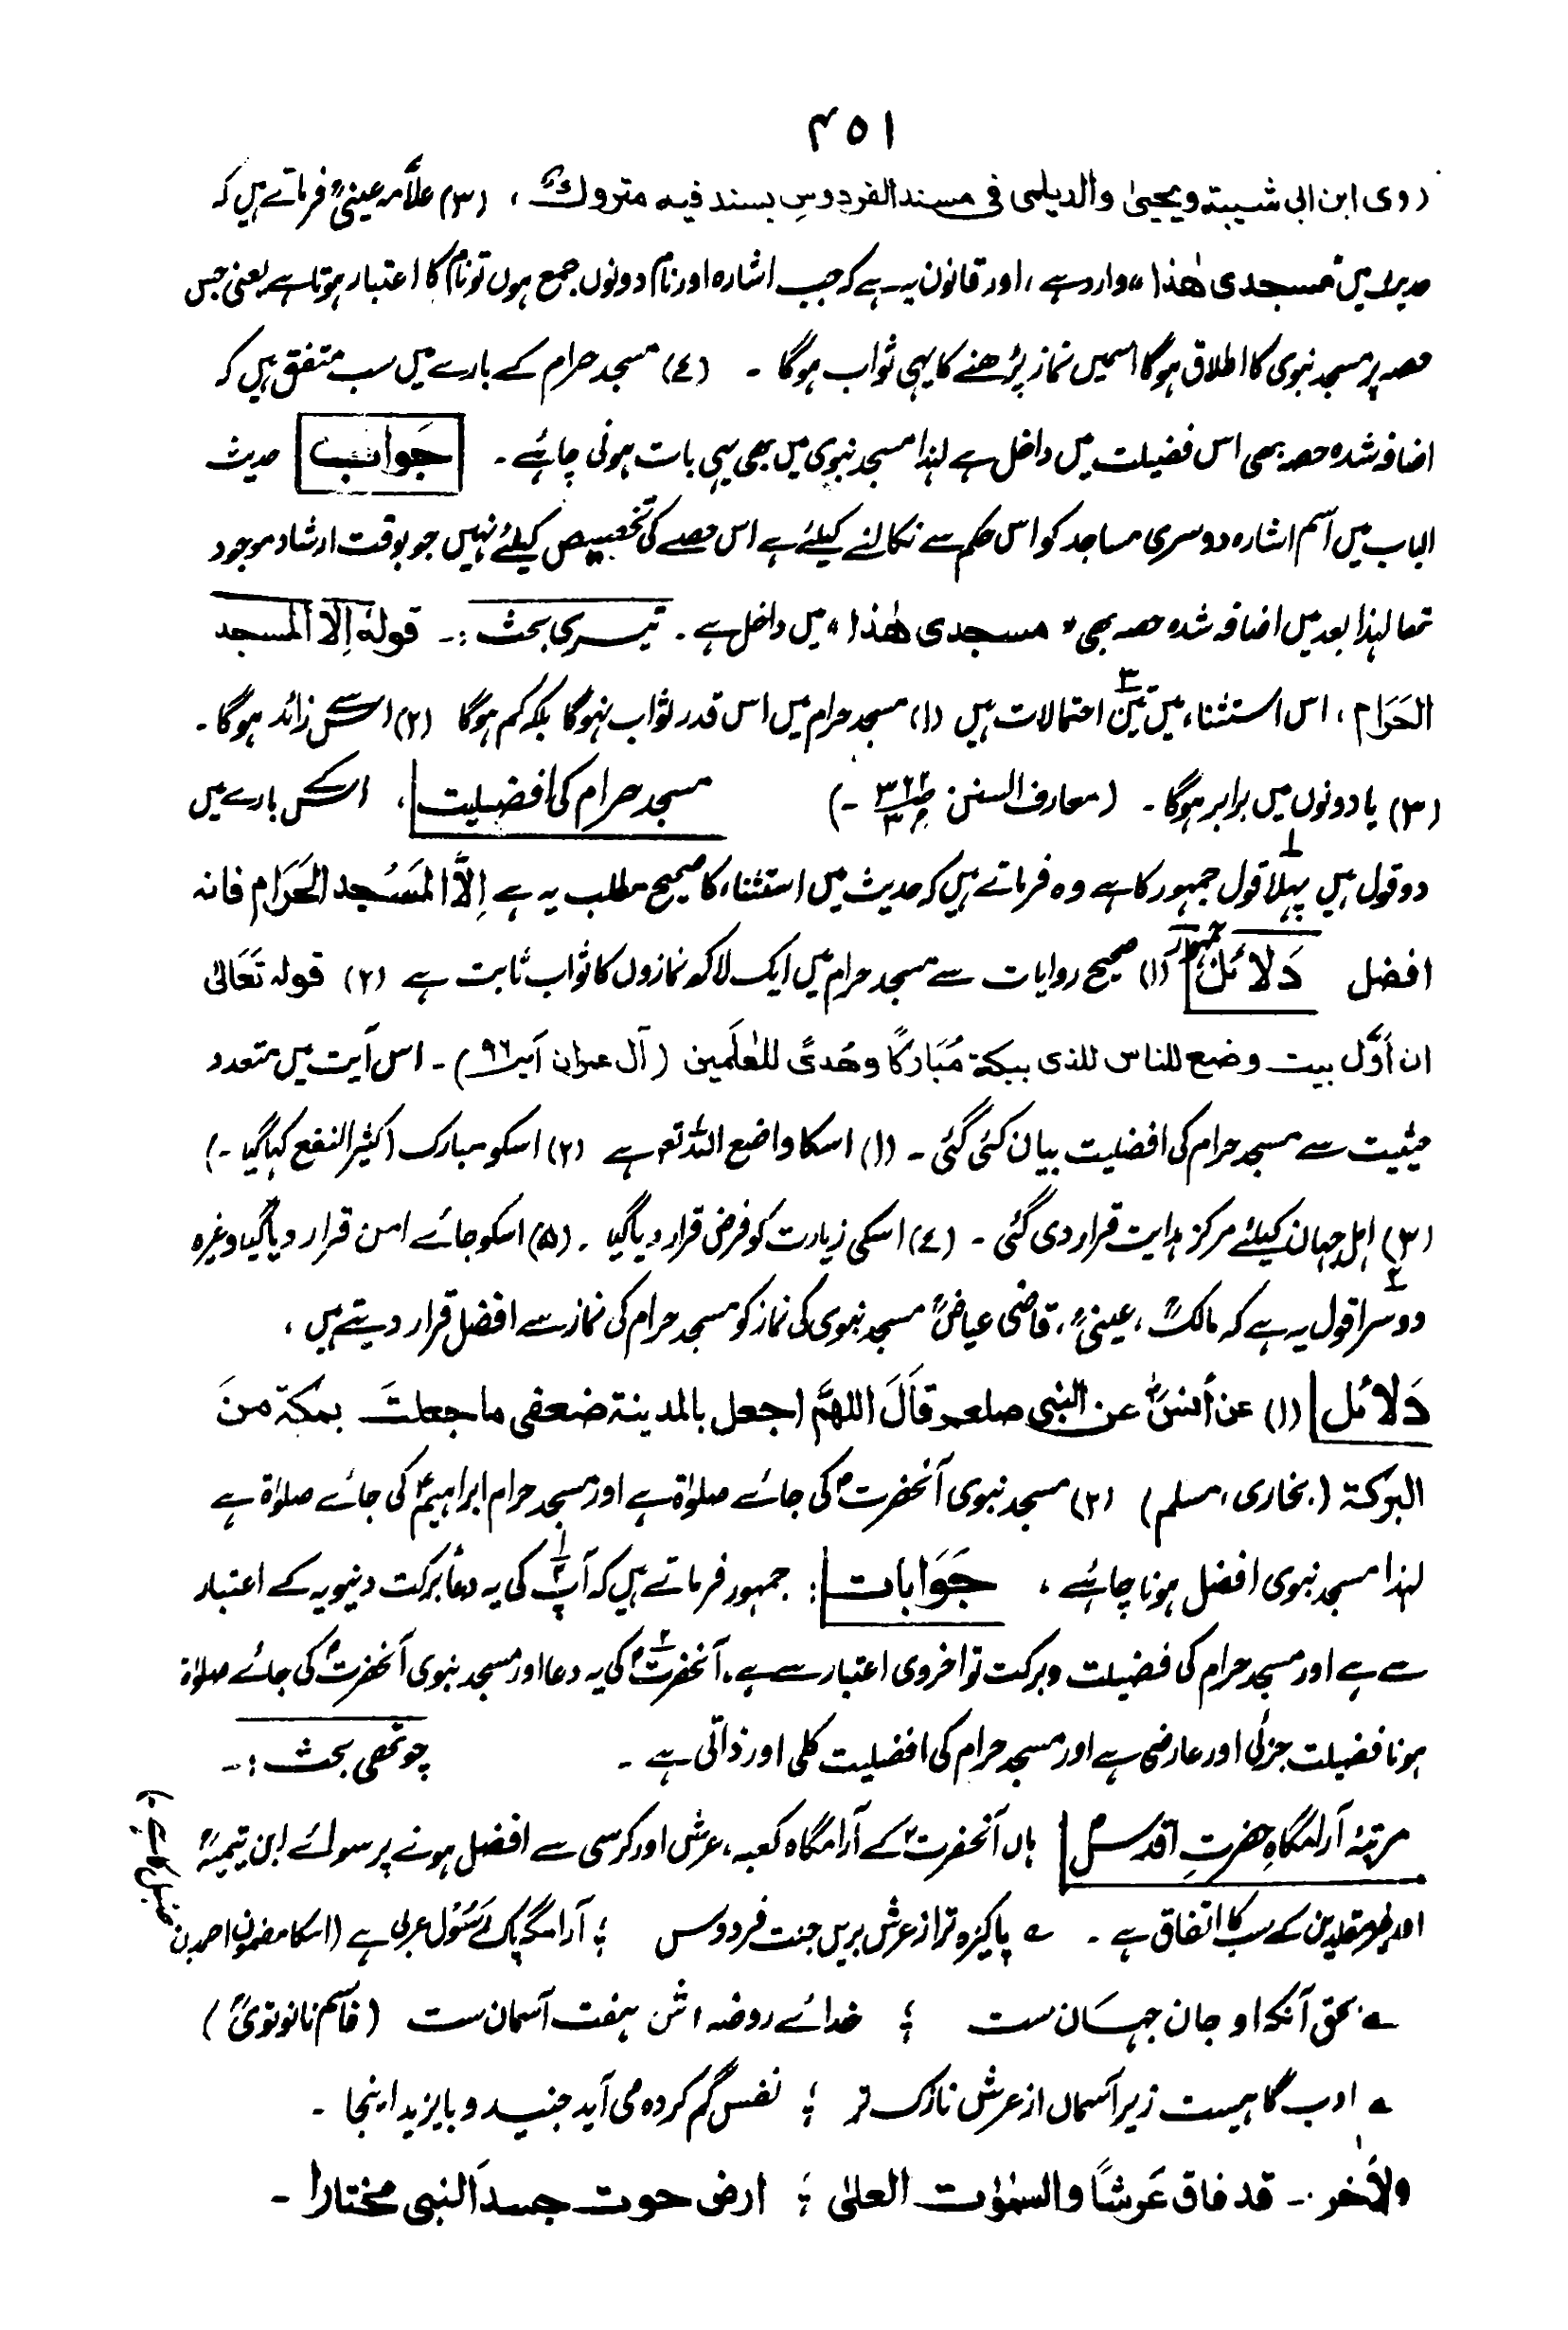 ٤٥١
روی ابن ابی شیبۃ ویحییٰ والدیلمی فی مسند الفردوس بسند فیہ متروک، (۳) علامہ عینیؒ فرماتے ہیں کہ
حدیث میں "مسجدی ھٰذا" وارد ہے، اور قانون یہ ہے کہ جب اشارہ اور نام دونوں جمع ہوں تو نام کا اعتبار ہوتا ہے یعنی جس
حصہ پر مسجد نبوی کا اطلاق ہوگا اسمیں نماز پڑھنے کا یہی ثواب ہوگا ۔ (٤) مسجد حرام کے بارے میں سب متفق ہیں کہ
اضافہ شدہ حصہ بھی اس فضیلت میں داخل ہے لہٰذا مسجد نبوی میں بھی یہی بات ہونی چاہئے ۔ جَواب حدیث
الباب میں اسم اشارہ دوسری مساجد کو اس حکم سے نکالنے کیلئے ہے اس حصے کی تخصیص کیلئے نہیں جو بوقت ارشاد موجود
تھا لہٰذا بعد میں اضافہ شدہ حصہ بھی "مسجدی ھٰذا" میں داخل ہے ۔ تیسری بحث :۔ قولہٗ اِلّا المسجد
الحَرَام، اس استثناء میں تین احتمالات ہیں (۱) مسجد حرام میں اس قدر ثواب نہوگا بلکہ کم ہوگا (۲) اس سے زائد ہوگا ۔
(۳) یا دونوں میں برابر ہوگا ۔ (معارف السنن ۔) مسجد حرام کی افضلیت، اس کے بارے میں
دو قول ہیں پہلا قول جمہور کا ہے وہ فرماتے ہیں کہ حدیث میں استثناء کا صحیح مطلب یہ ہے اِلَّا المَسْجد الحَرَام فانہ
افضل دَلائل جمہور (۱) صحیح روایات سے مسجد حرام میں ایک لاکھ نمازوں کا ثواب ثابت ہے (۲) قولہ تَعَالیٰ
ان اَوّل بیت وضع للناس للذی ببکۃ مُبَارکًا وھُدیً للعٰلَمین (آل عمران آیت ۹٦) ۔ اس آیت میں متعدد
حیثیت سے مسجد حرام کی افضلیت بیان کئی گئی ۔ (۱) اسکا واضع اللہ تعہ ہے (۲) اسکو مبارک (کثیر النفع کہا گیا ۔)
(۳) اہل جہان کیلئے مرکز ہدایت قرار دی گئی ۔ (٤) اسکی زیارت کو فرض قرار دیا گیا ۔ (۵) اسکو جائے امن قرار دیا گیا وغیرہ
دوسرا قول یہ ہے کہ مالکؒ، عینیؒ، قاضی عیاضؒ مسجد نبوی کی نماز کو مسجد حرام کی نماز سے افضل قرار دیتے ہیں ،
دَلائل (۱) عن اَنسؓ عن النبی صلعم قَالَ اللھمّ اجعل بالمدینۃ ضعفی ما جعلتَ بمکۃ منَ
البرکۃ (بخاری، مسلم) (۲) مسجد نبوی آنحضرتؐ کی جائے صلوٰۃ ہے اور مسجد حرام ابراہیمؑ کی جائے صلوٰۃ ہے
لہٰذا مسجد نبوی افضل ہونا چاہئے ، جَوَابات : جمہور فرماتے ہیں کہ آپؐ کی یہ دعا برکت دنیویہ کے اعتبار
سے ہے اور مسجد حرام کی فضیلت وبرکت تو اخروی اعتبار سے ہے، آنحضرتؐ کی یہ دعا اور مسجد نبوی آنحضرتؐ کی جائے صلوٰۃ
ہونا فضیلت جزئی اور عارضی ہے اور مسجد حرام کی افضلیت کلی اور ذاتی ہے ۔ چوتھی بحث :۔
مرتبۂ آرامگاہِ حضرتِ اقدسؐ ہاں آنحضرتؐ کے آرامگاہ کعبہ، عرش اور کرسی سے افضل ہونے پر سوائے ابن تیمیہؒ
اور غیر مقلدین کے سب کا اتفاق ہے ۔ ؎ پاکیزہ تر از عرش بریں جنت فردوس ؛ آرامگہ پاک رسُول عربی ہے (اسکا مضمون احمد بن
حنبل سے ہے)
؎ بحق آنکہ او جان جہان ست ؛ فدائے روضہ اش ہفت آسمان ست (قاسم نانوتویؒ)
؎ ادب گاہیست زیر آسماں از عرش نازک تر ؛ نفس گم کردہ می آید جنید و بایزید اینجا ۔
ولآخر ۔ قد فاق عَرشًا والسمٰوٰت العلیٰ ؛ ارض حوت جسد النبی مختارا ۔